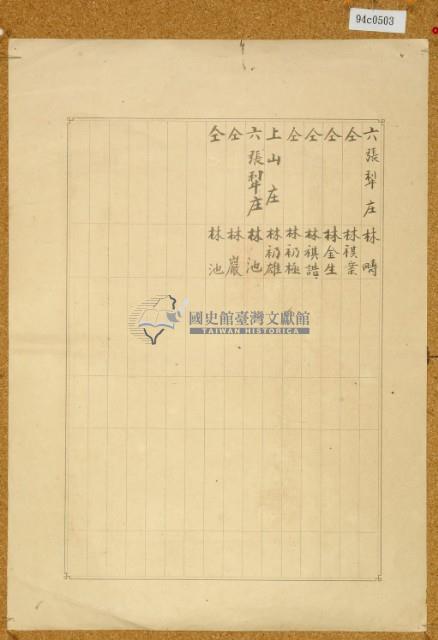 94c0503
六張犁庄 林疇
仝 林祺業
仝 林金生
仝 林祺誥
仝 林初極
上山庄 林初雄
六張犁庄 林池
仝 林巖
仝 林池
國史館臺灣文獻館
TAIWAN HISTORICA